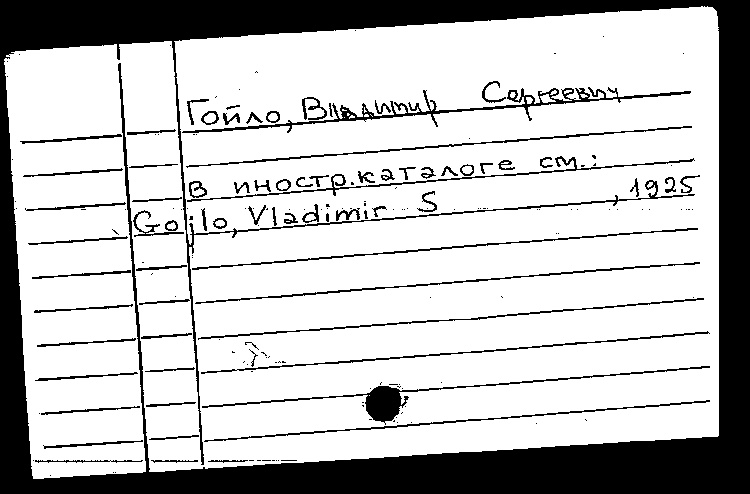 Гойло, Владимир Сергеевич
в иностр. каталоге см.:
Gojlo, Vladimir S , 1925